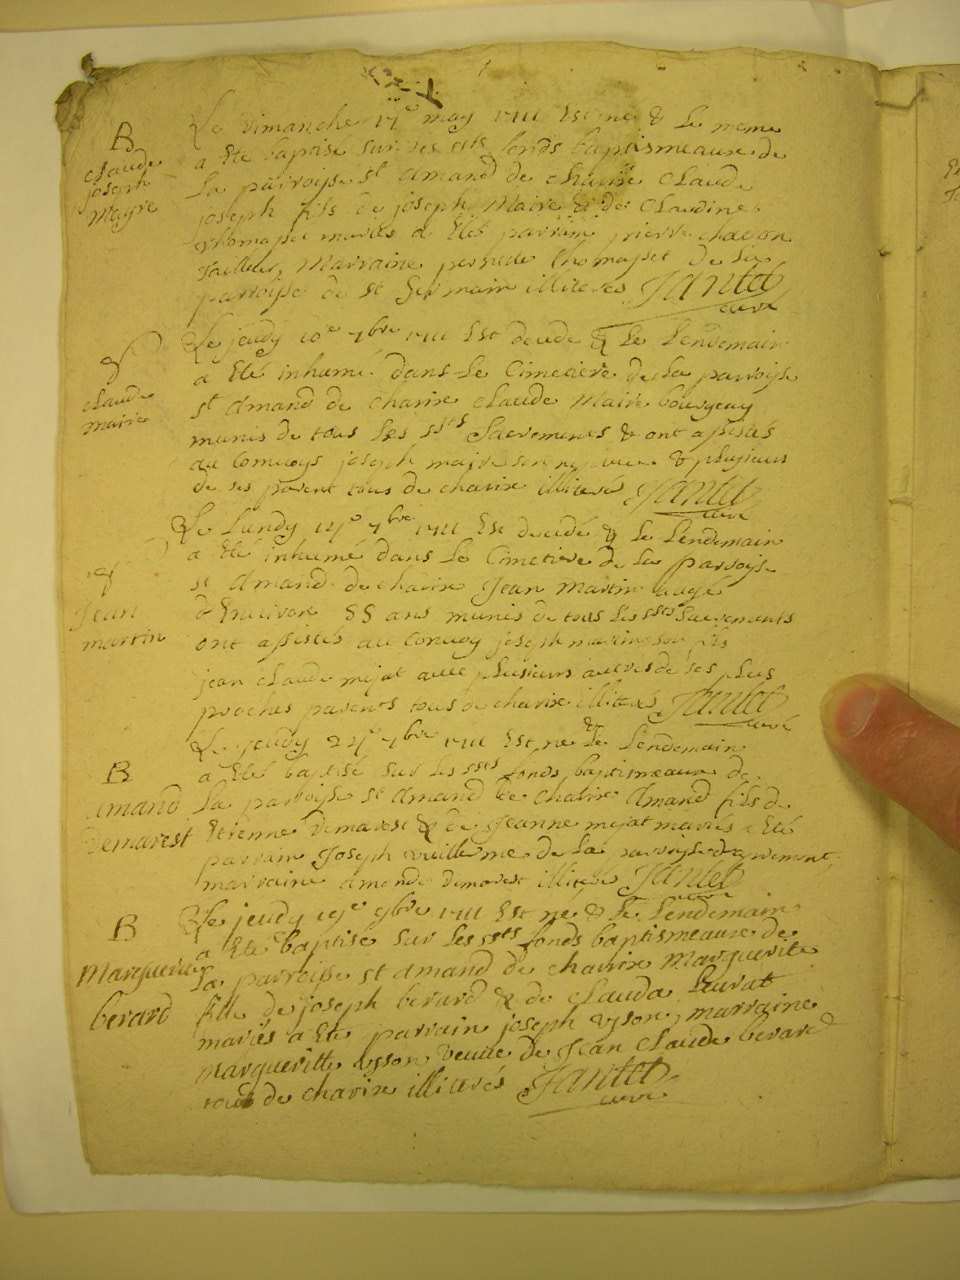 B
claude
joseph
Mayre
Le Dimanche 17e may 1711 Est ne & Le meme
a Ete baptise sur les sts fonds baptismeaux de
La parroisse st Amand de Charix Claude
joseph fils de joseph Maire & de Claudine
Thomasset mariés a Eté parrain pierre
tailleur, Marraine pernette Thomasset de La
parroisse de st Germain illiterés Jantet
curé
claude
maire
Le jeudy 10e 7bre 1711 Est decede & Le Lendemain
a Eté inhumé dans Le Cimetiere de La parroisse
st Amand de Charix Claude Maire
munis de tous Les ssts Sacrements & ont assistés
au Convoys joseph maire son & plusieurs
de ses parent tous de charix illiterés Jantet
curé
Jean
martin
Le Lundy 14e 7bre 1711 Est decedé & Le Lendemain
a Eté inhumé dans Le Cimetiere de La parroisse
st Amand de charix Jean Martin augé
d'Environ 55 ans munis de tous Les ssts Sacrements
ont assistés au Convoy joseph martin son fils
jean claude mejat avec plusieurs autres de ses plus
proches parents tous de charix illiterés Jantet
curé
B
amand
Demarest
Le jeudy 24e 7bre 1711 Est ne & Le Lendemain
a Eté baptisé sur Les ssts fonds baptismeaux de
La parroisse st Amand de Charix Amand fils de
Etienne Demarest & de Jeanne mejat mariés a Eté
parrain Joseph vuillerme de La parroisse
marraine Amande Demarest illiterés Jantet
curé
B
Marguerite
berard
Le jeudy 19e 9bre 1711 Est ne & Le Lendemain
a Ete baptise sur Les ssts fonds baptismeaux de
La parroisse st Amand de charix Marguerite
fille de joseph berard & de Clauda Levrat
mariés a Eté parrain joseph ysson, marraine
Marguerite ysson veuve de Jean Claude berard
tous de charix illiterés Jantet
curé